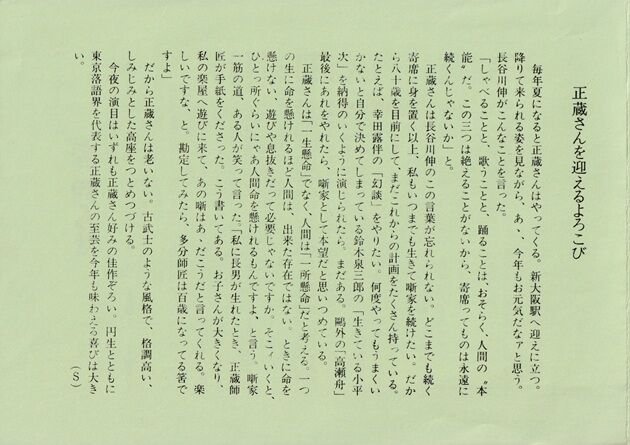 正蔵さんを迎えるよろこび
毎年夏になると正蔵さんはやってくる。新大阪駅へ迎えに立つ。
降りて来られる姿を見ながら、あゝ、今年もお元気だなァと思う。
長谷川伸がこんなことを言った。
「しゃべることと、歌うことと、踊ることは、おそらく、人間の〝本
能〟だ。この三つは絶えることがないから、寄席ってものは永遠に
続くんじゃないか」と。
正蔵さんは長谷川伸のこの言葉が忘れられない。どこまでも続く
寄席に身を置く以上、私もいつまでも生きて噺家を続けたい。だか
ら八十歳を目前にして、まだこれからの計画をたくさん持っている。
たとえば、幸田露伴の「幻談」をやりたい。何度やってもうまくい
かないと自分で決めてしまっている鈴木泉三郎の「生きている小平
次」を納得のいくように演じられたら。まだある。鷗外の「高瀬舟」
最後にあれをやれたら、噺家として本望だと思いつめている。
正蔵さんは「一生懸命」でなく、人間は「一所懸命」だと考える。一つ
の生に命を懸けれるほど人間は、出来た存在ではない。ときに命を
懸けない、遊びや息抜きだって必要じゃないですか。そこィいくと、
ひとっ所ぐらいにゃあ人間命を懸けれるもんですよ、と言う。噺家
一筋の道、ある人が笑って言った。「私に長男が生れたとき、正蔵師
匠が手紙をくださった。こう書いてある。お子さんが大きくなり、
私の楽屋へ遊びに来て、あの噺はあゝだこうだと言ってくれる。楽
しいですな、と。勘定してみたら、多分師匠は百歳になってる筈で
すよ」
だから正蔵さんは老いない。古武士のような風格で、格調高い、
しみじみとした高座をつとめつづける。
今夜の演目はいずれも正蔵さん好みの佳作ぞろい。円生とともに
東京落語界を代表する正蔵さんの至芸を今年も味わえる喜びは大き
い。
（S）